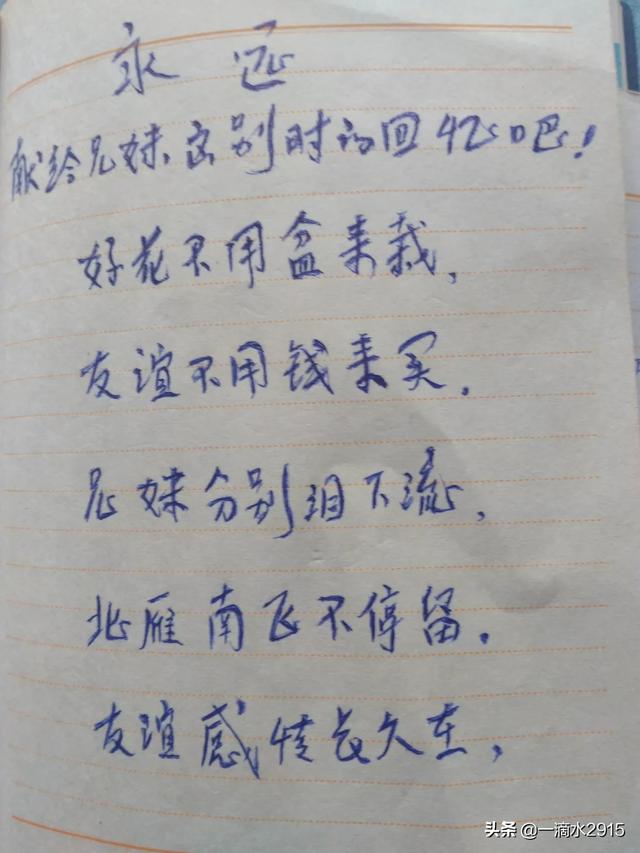 永远
献给兄妹离别时的回忆吧！
好花不用盆来栽，
友谊不用钱来买。
兄妹分别泪下流，
北雁南飞不停留。
友谊感情长久在，
头条 @一滴水2915